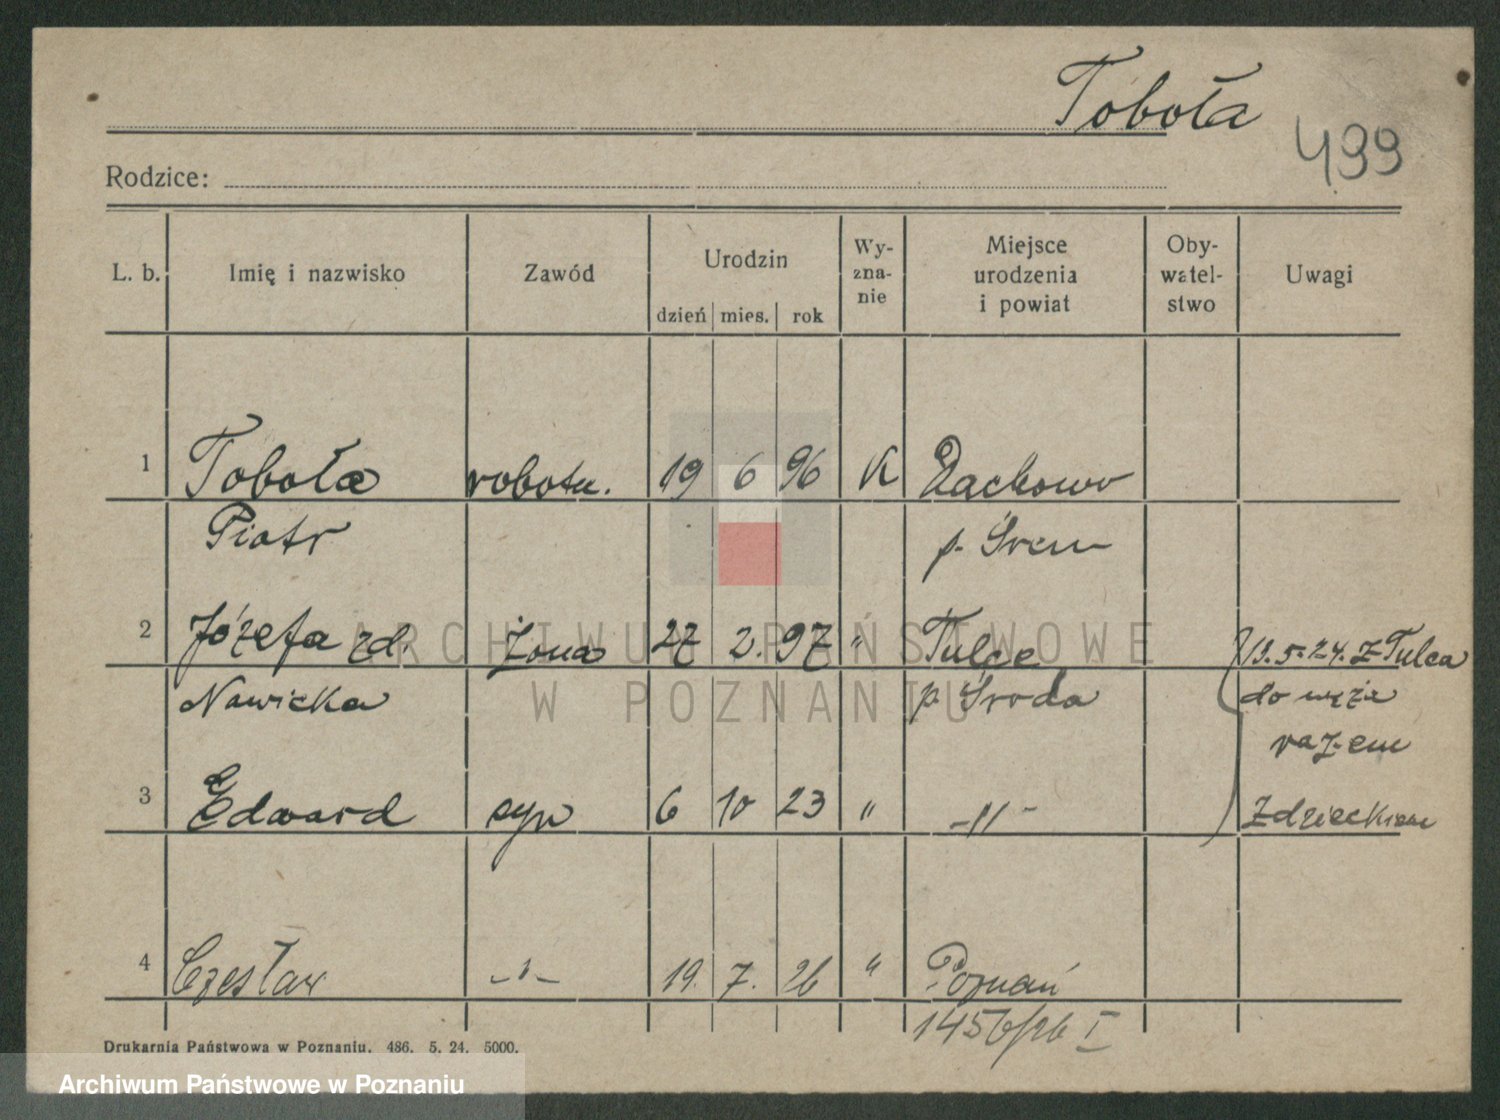 Toboła
499
Rodzice:
L. b. Imię i nazwisko Zawód Urodzin dzień mies. rok Wy-zna-nie Miejsce urodzenia i powiat Oby-watel-stwo Uwagi
1 Toboła robotn. 19 6 96 K Dachowo
Piotr p. Śrem
2 Józefa zd. żona 27 2. 97 " Tulce 13.5.24. z Tulca
Nawicka p. Środa do męża
razem
3 Edward syn 6 10 23 " -"- z dzieckiem
4 Czesław -"- 19. 7. 26 " Poznań
1456/26 I
Drukarnia Państwowa w Poznaniu. 486. 5. 24. 5000.
ARCHIWUM PAŃSTWOWE
W POZNANIU
Archiwum Państwowe w Poznaniu